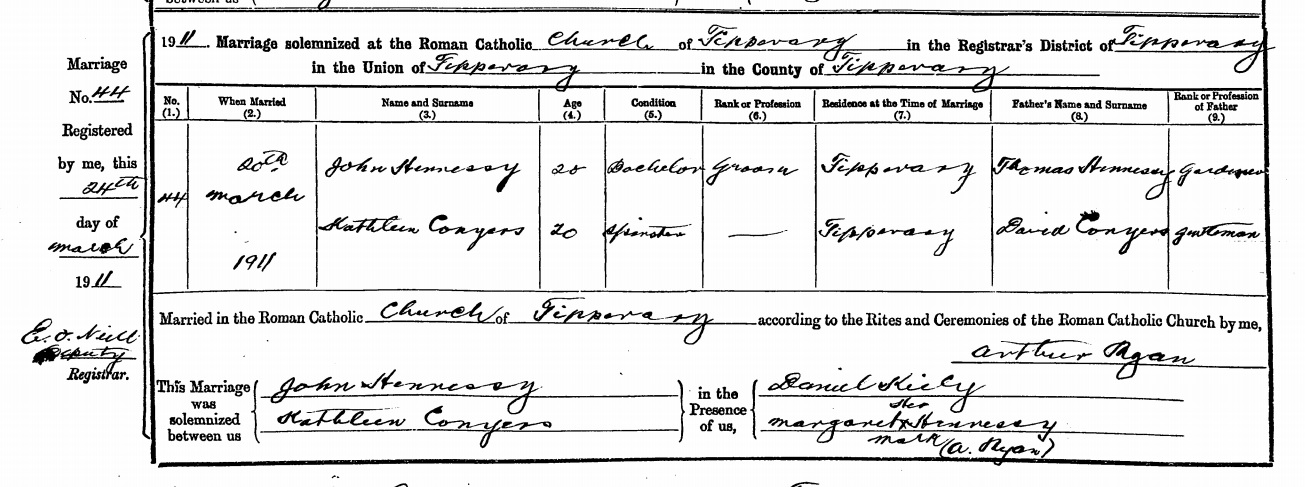 1911. Marriage solemnized at the Roman Catholic Church of Tipperary in the Registrar's District of Tipperary
in the Union of Tipperary in the County of Tipperary
Marriage
No. 44
Registered
by me, this
24th
day of
March
1911
E. O. Neill
Deputy
Registrar.
No. (1.) When Married (2.) Name and Surname (3.) Age (4.) Condition (5.) Rank or Profession (6.) Residence at the Time of Marriage (7.) Father's Name and Surname (8.) Rank or Profession of Father (9.)
44 20th March 1911 John Hennessy 28 Bachelor Groom Tipperary Thomas Hennessy Gardener
Kathleen Conyers 20 Spinster — Tipperary David Conyers gentleman
Married in the Roman Catholic Church of Tipperary according to the Rites and Ceremonies of the Roman Catholic Church by me,
Arthur Ryan
This Marriage was solemnized between us
John Hennessy
Kathleen Conyers
in the Presence of us,
Daniel Kiely
her
Margaret x Hennessy
mark (A. Ryan)